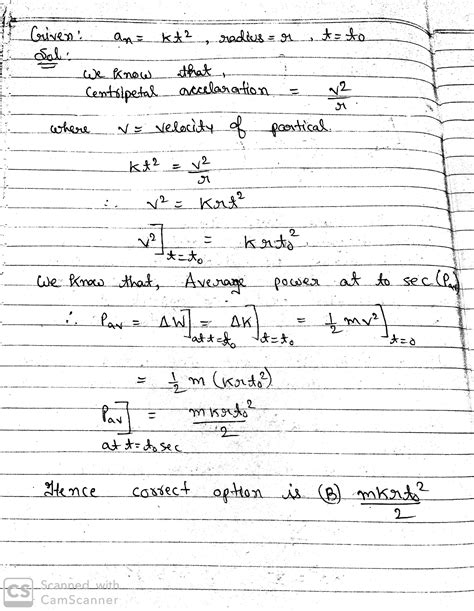 Given: an = kt², radius = r, t = t₀
Sol:
We know that,
Centripetal accelaration = v²/r
where v = velocity of partical.
kt² = v²/r
∴ v² = krt²
v²]t=t₀ = krt₀²
We know that, Average power at to sec (Pav)
∴ Pav = ΔW]at t=t₀ = ΔK]t=t₀ = 1/2 mv²]t=0
= 1/2 m (krt₀²)
Pav]at t=to sec = mkrt₀²/2
Hence correct option is (B) mkrt₀²/2
CS Scanned with
CamScanner